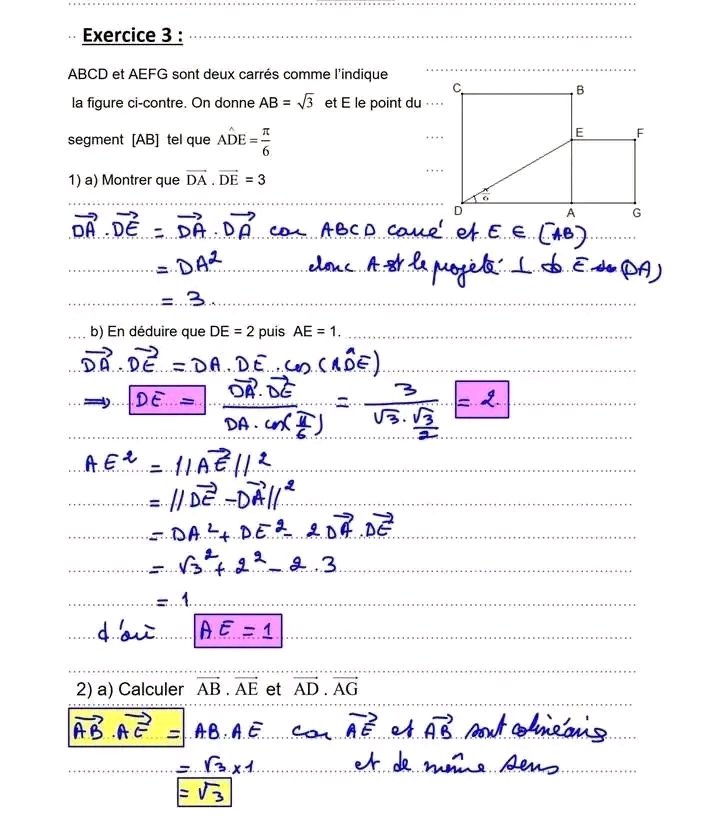 Exercice 3 :
ABCD et AEFG sont deux carrés comme l'indique
la figure ci-contre. On donne AB = √3 et E le point du
segment [AB] tel que AD̂E = π/6
1) a) Montrer que DA⃗ . DE⃗ = 3
C B
E F
π/6
D A G
DA⃗ . DE⃗ = DA⃗ . DA⃗ car ABCD carré et E ∈ [AB]
= DA² donc A est le projeté ⊥ de E sur (DA)
= 3.
b) En déduire que DE = 2 puis AE = 1.
DA⃗ . DE⃗ = DA . DE . cos(AD̂E)
⟹ DE = DA⃗ . DE⃗ / DA . cos(π/6) = 3 / √3 . √3/2 = 2.
AE² = ||AE⃗||²
= ||DE⃗ - DA⃗||²
= DA² + DE² - 2 DA⃗ . DE⃗
= √3² + 2² - 2 . 3
= 1
d'où AE = 1
2) a) Calculer AB⃗ . AE⃗ et AD⃗ . AG⃗
AB⃗ . AE⃗ = AB . AE car AE⃗ et AB⃗ sont colinéaires
= √3 x 1 et de même sens
= √3